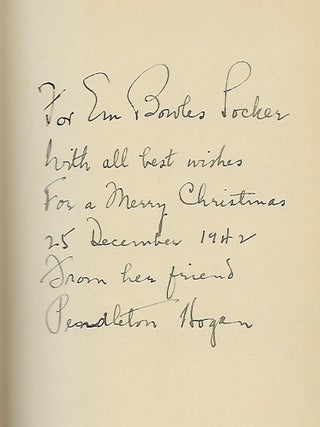 For Em Bowles Locker
With all best wishes
For a Merry Christmas
25 December 1942
From her friend
Pendleton Hogan